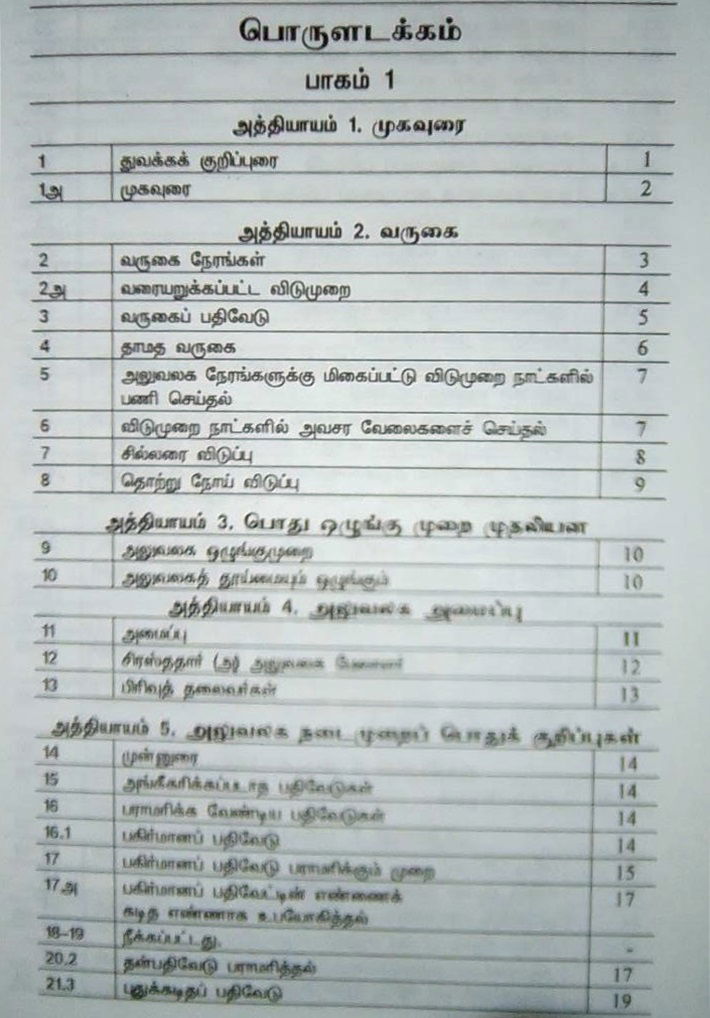 பொருளடக்கம்
பாகம் 1
அத்தியாயம் 1. முகவுரை
1 துவக்கக் குறிப்புரை 1
1அ முகவுரை 2
அத்தியாயம் 2. வருகை
2 வருகை நேரங்கள் 3
2அ வரையறுக்கப்பட்ட விடுமுறை 4
3 வருகைப் பதிவேடு 5
4 தாமத வருகை 6
5 அலுவலக நேரங்களுக்கு மிகைப்பட்டு விடுமுறை நாட்களில் 7
பணி செய்தல்
6 விடுமுறை நாட்களில் அவசர வேலைகளைச் செய்தல் 7
7 சில்லரை விடுப்பு 8
8 தொற்று நோய் விடுப்பு 9
அத்தியாயம் 3. பொது ஒழுங்கு முறை முதலியன
9 அலுவலக ஒழுங்குமுறை 10
10 அலுவலகத் தூய்மையும் ஒழுங்கும் 10
அத்தியாயம் 4. அலுவலக அமைப்பு
11 அமைப்பு 11
12 சிரஸ்ததார் (அ) அலுவலக 12
13 பிரிவுத் தலைவர்கள் 13
அத்தியாயம் 5. அலுவலக நடை முறைப் பொதுக் குறிப்புகள்
14 முன்னுரை 14
15 அங்கீகரிக்கப்படாத பதிவேடுகள் 14
16 பராமரிக்க வேண்டிய பதிவேடுகள் 14
16.1 பகிர்மானப் பதிவேடு 14
17 பகிர்மானப் பதிவேடு பராமரிக்கும் முறை 15
17அ பகிர்மானப் பதிவேட்டின் எண்ணைக் 17
கடித எண்ணாக உபயோகித்தல்
18-19 நீக்கப்பட்டது. -
20.2 தன்பதிவேடு பராமரித்தல் 17
21.3 புதுக்கடிதப் பதிவேடு 19